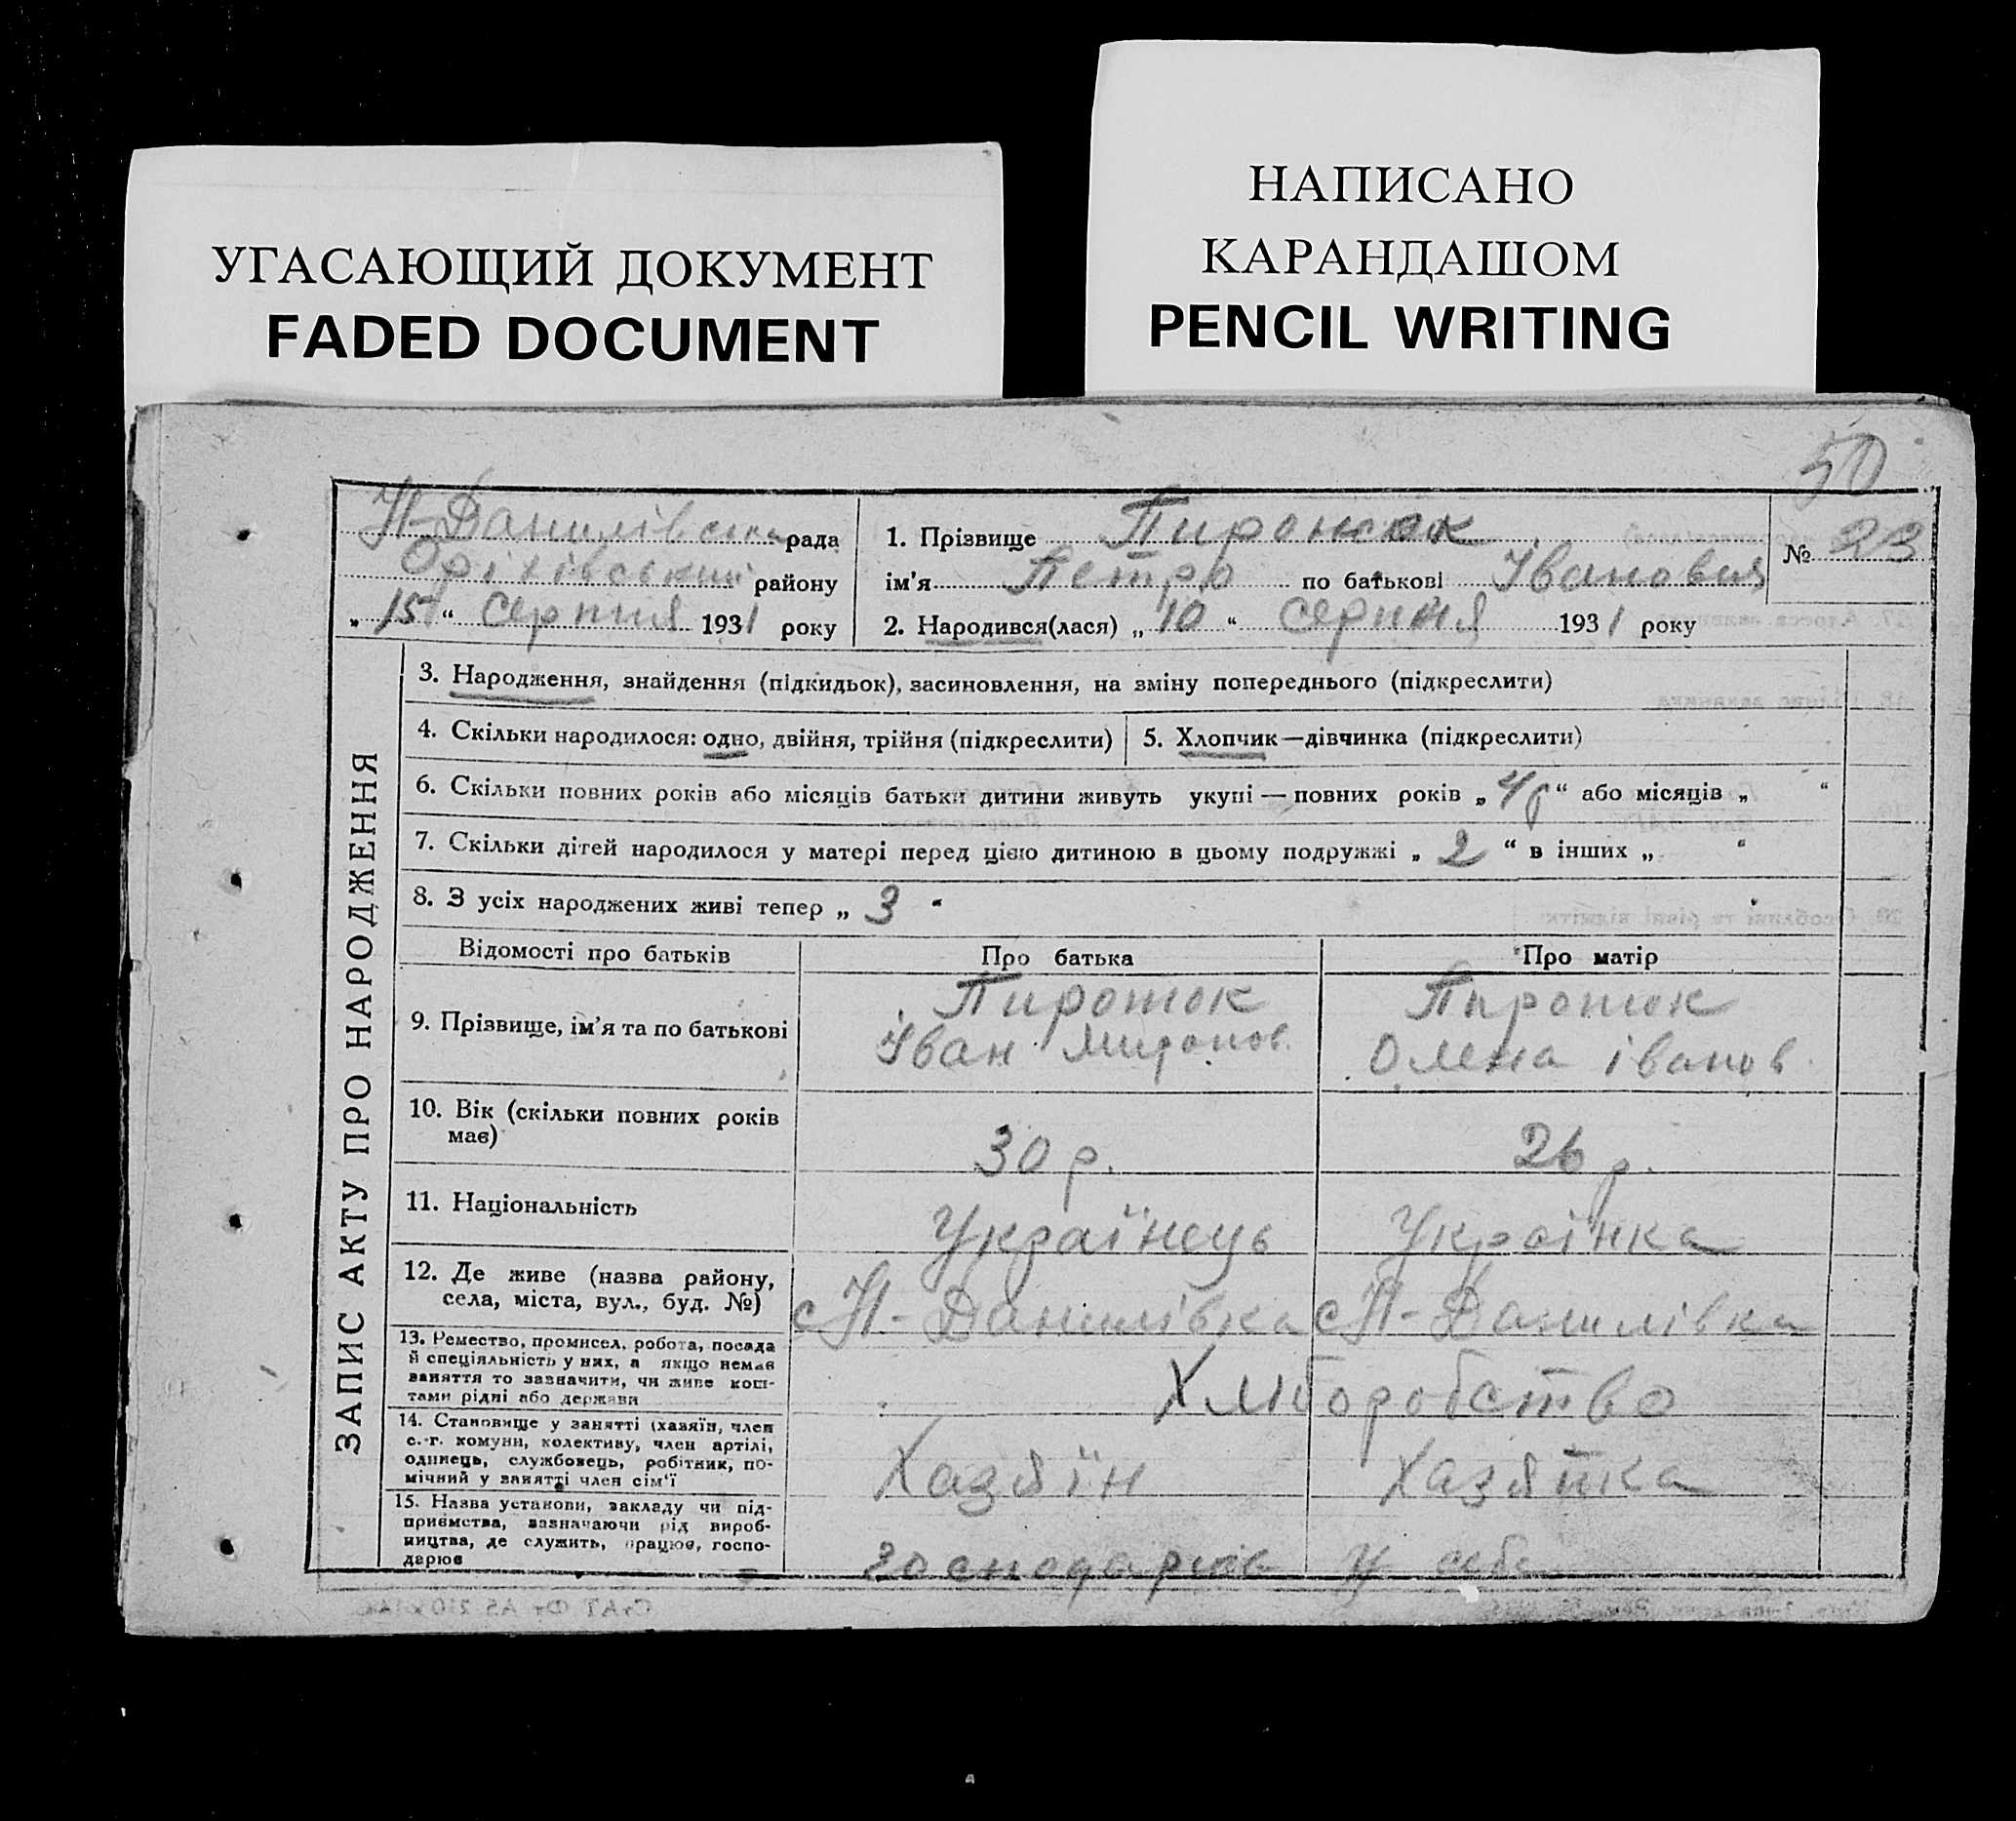 НАПИСАНО
КАРАНДАШОМ
PENCIL WRITING
УГАСАЮЩИЙ ДОКУМЕНТ
FADED DOCUMENT
50
Н-Данилівська рада
Оріхівський району
„15“ серпня 1931 року
1. Прізвище
ім'я Петро по батькові Іванович
2. Народився(лася) „10“ серпня 1931 року
№ 23
ЗАПИС АКТУ ПРО НАРОДЖЕННЯ
3. Народження, знайдення (підкидьок), засиновлення, на зміну попереднього (підкреслити)
4. Скільки народилося: одно, двійня, трійня (підкреслити)
5. Хлопчик—дівчинка (підкреслити)
6. Скільки повних років або місяців батьки дитини живуть укупі — повних років „4р“ або місяців „ “
7. Скільки дітей народилося у матері перед цією дитиною в цьому подружжі „2“ в інших „ “
8. З усіх народжених живі тепер „3“
Відомості про батьків
Про батька
Про матір
9. Прізвище, ім'я та по батькові
Іван Миронов.
Олена Іванов.
10. Вік (скільки повних років
має)
30 р.
26 р.
11. Національність
Українець
Українка
12. Де живе (назва району,
села, міста, вул., буд. №)
с Н-Данилівка
с Н-Данилівка
13. Ремество, промисел, робота, посада
й спеціяльність у них, а якщо немає
заняття то зазначити, чи живе кош-
тами рідні або держави
Хліборобство
14. Становище у занятті (хазяїн, член
с.-г. комуни, колективу, член артілі,
одинець, службовець, робітник, по-
мічний у занятті член сім'ї
Хазяїн
Хазяйка
15. Назва установи, закладу чи під-
приємства, зазначаючи рід вироб-
ництва, де служить, працює, госпо-
дарює
господарює у себе